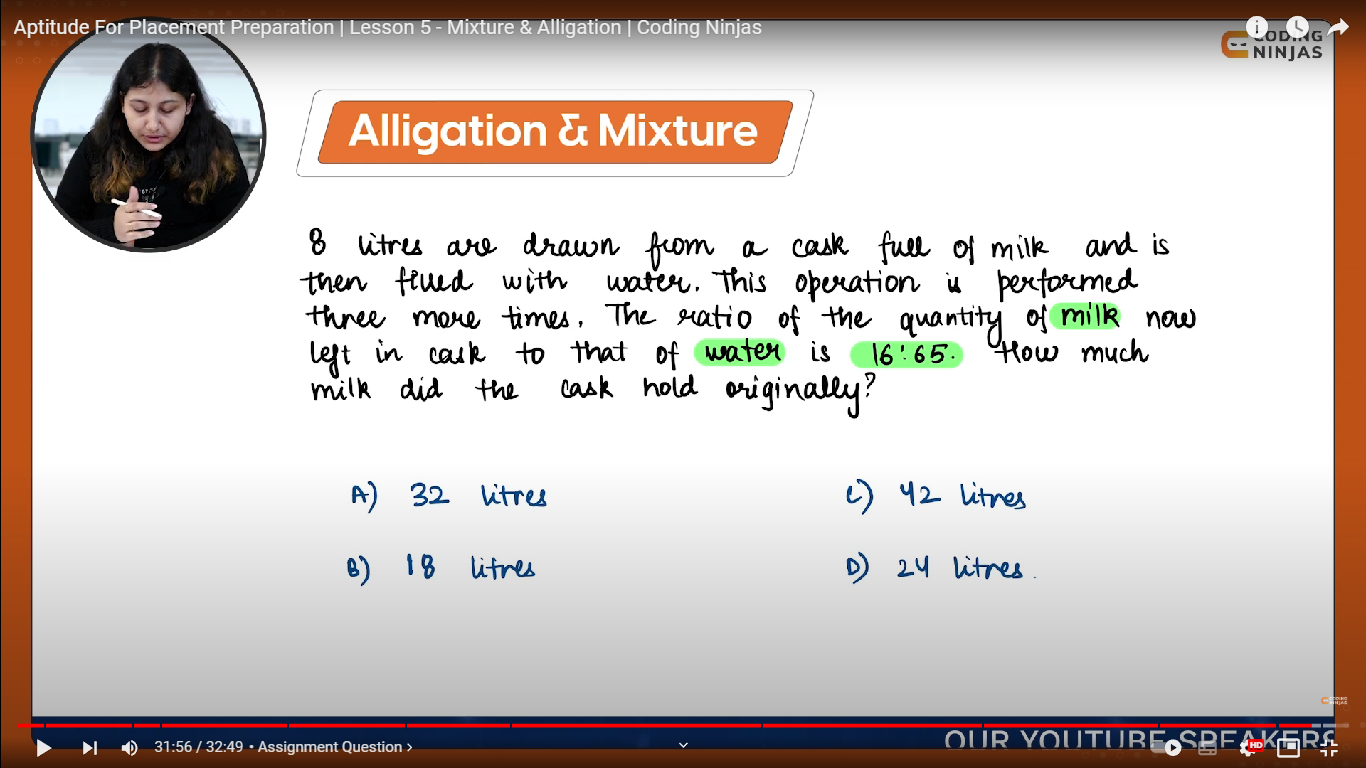 Aptitude For Placement Preparation | Lesson 5 - Mixture & Alligation | Coding Ninjas
CODING
NINJAS
Alligation & Mixture
8 litres are drawn from a cask full of milk and is
then filled with water. This operation is performed
three more times. The ratio of the quantity of milk now
left in cask to that of water is 16:65. How much
milk did the cask hold originally?
A) 32 litres
C) 42 litres
B) 18 litres
D) 24 litres
CODING
NINJAS
31:56 / 32:49 • Assignment Question ›
OUR YOUTUBE SPEAKERS
HD